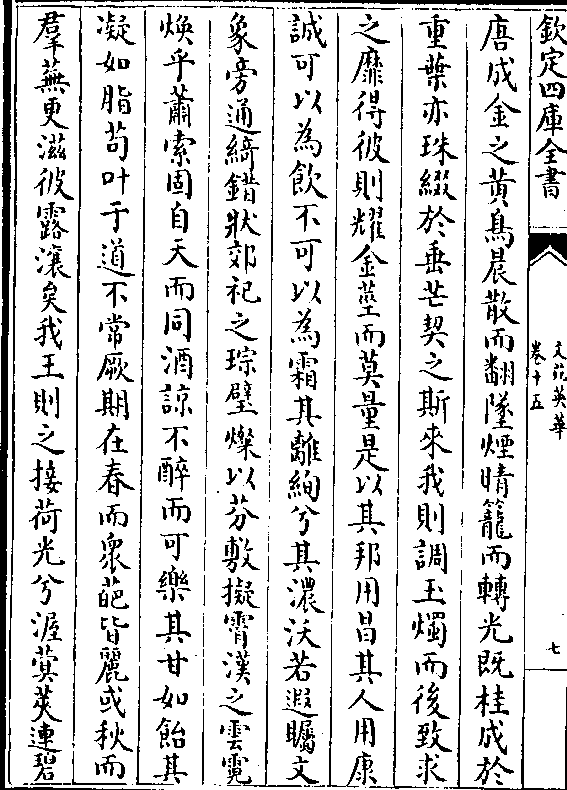 欽定四庫全書
文苑英華
卷十五
七
唐成金之黄鳥晨散而翻墜煙晴籠而轉光既桂成於
重葉亦珠綴於垂芒契之斯來我則調玉燭而後致求
之靡得彼則耀金莖而莫量是以其邦用昌其人用康
誠可以為飲不可以為霜其離絢兮其濃沃若遐矚文
象旁通綺錯狀郊祀之琮璧燦以芬敷擬霄漢之雲霓
煥乎蕭索固自天而同酒諒不醉而可樂其甘如飴其
凝如脂苟叶于道不常厥期在春而衆葩皆麗或秋而
羣蕪更滋彼露瀼矣我王則之接荷光兮渥蓂莢連碧